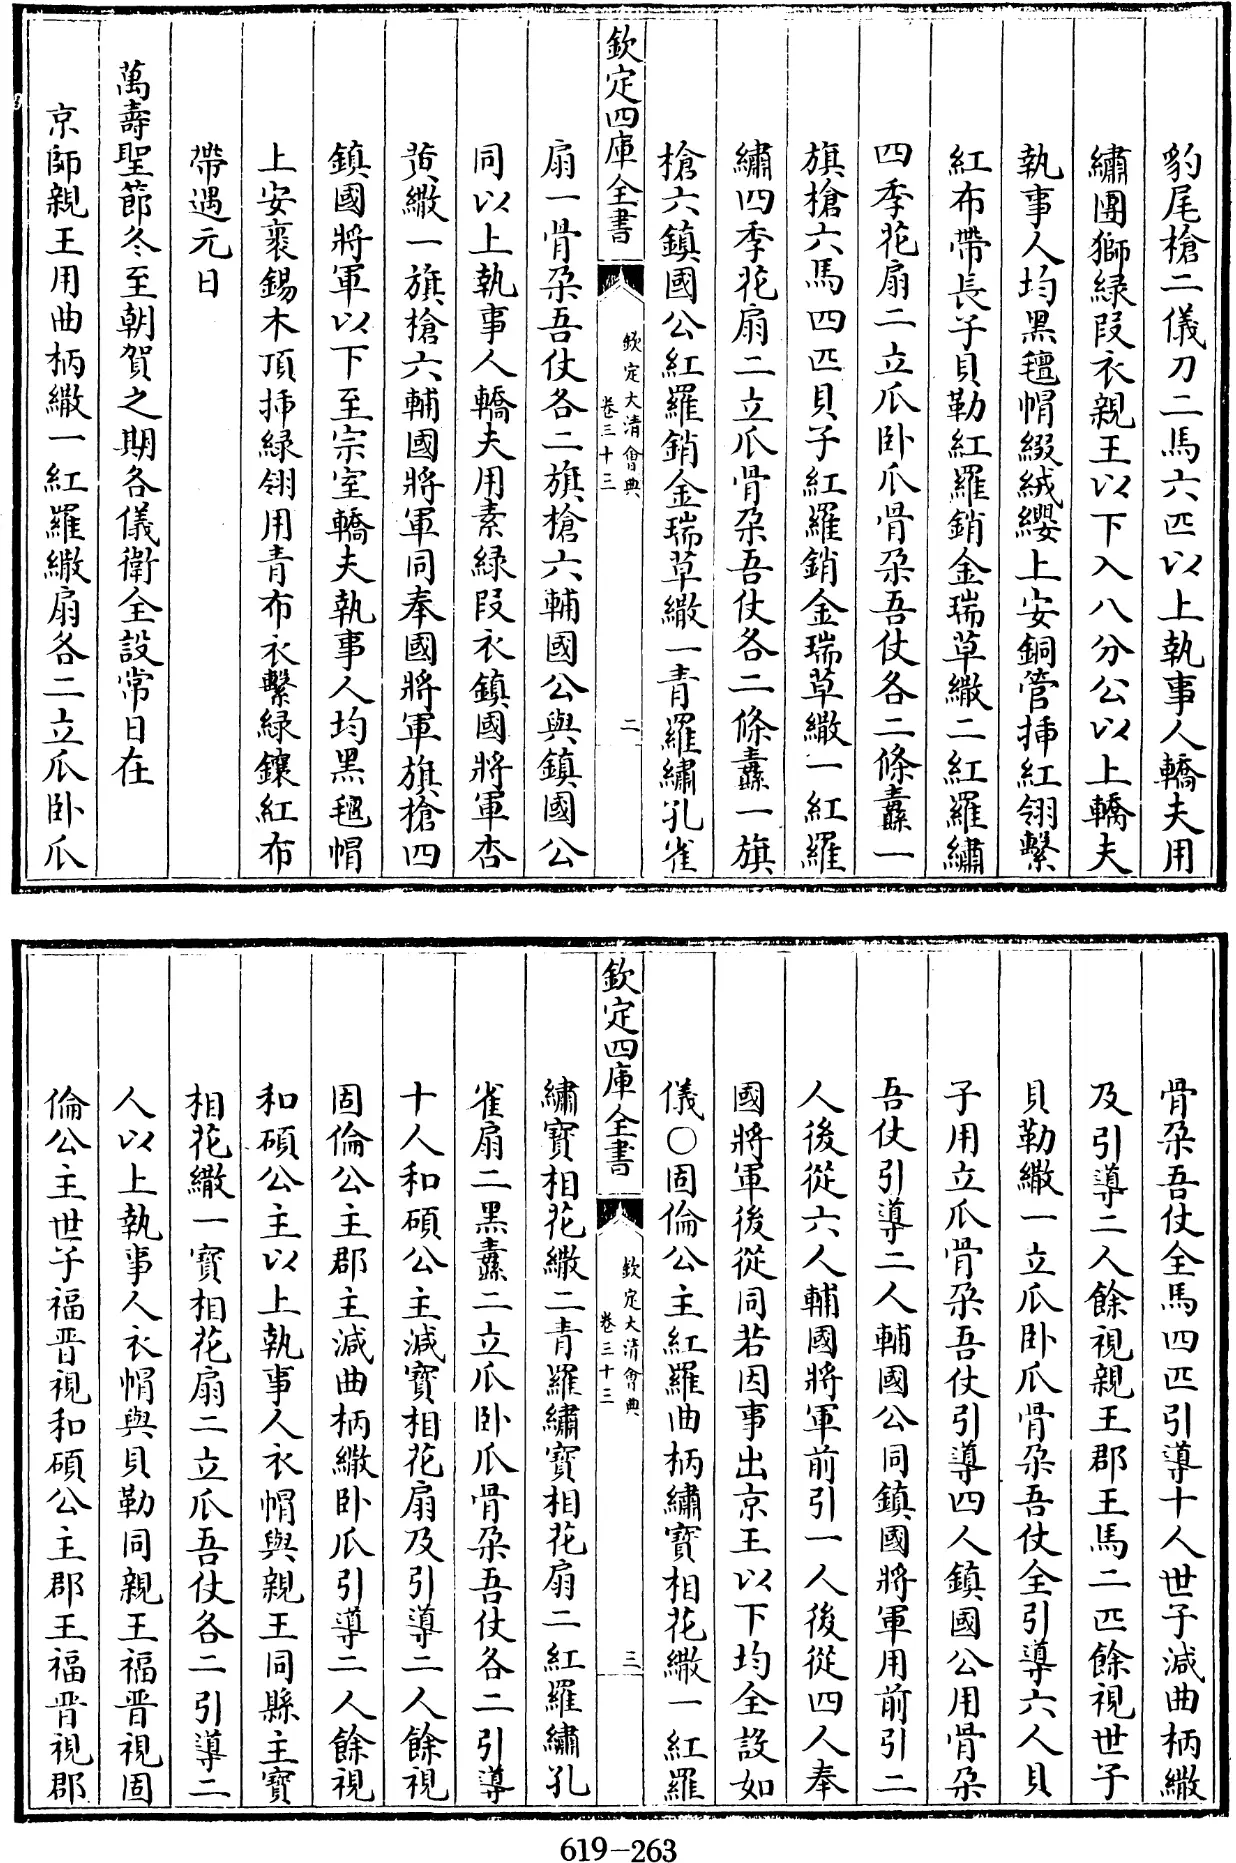 豹尾槍二儀刀二馬六匹以上執事人轎夫用
繡團獅緑叚衣親王以下入八分公以上轎夫
執事人均黑氊帽綴絨纓上安銅管揷紅翎繫
紅布帶長子貝勒紅羅銷金瑞草繖二紅羅繡
四季花扇二立瓜卧瓜骨朶吾仗各二條纛一
旗槍六馬四匹貝子紅羅銷金瑞草繖一紅羅
繡四季花扇二立瓜骨朶吾仗各二條纛一旗
槍六鎮國公紅羅銷金瑞草繖一青羅繡孔雀
欽定四庫全書
欽定大清會典
卷三十三
二
扇一骨朶吾仗各二旗槍六輔國公與鎮國公
同以上執事人轎夫用素緑叚衣鎮國將軍杏
黄繖一旗槍六輔國將軍同奉國將軍旗槍四
鎮國將軍以下至宗室轎夫執事人均黑氊帽
上安裹錫木頂揷緑翎用青布衣繫緑鑲紅布
帶遇元日
萬壽聖節冬至朝賀之期各儀衛全設常日在
京師親王用曲柄繖一紅羅繖扇各二立瓜卧瓜
骨朶吾仗全馬四匹引導十人世子減曲柄繖
及引導二人餘視親王郡王馬二匹餘視世子
貝勒繖一立瓜卧瓜骨朶吾仗全引導六人貝
子用立瓜骨朶吾仗引導四人鎮國公用骨朶
吾仗引導二人輔國公同鎮國將軍用前引二
人後從六人輔國將軍前引一人後從四人奉
國將軍後從同若因事出京王以下均全設如
儀○固倫公主紅羅曲柄繡寶相花繖一紅羅
欽定四庫全書
欽定大清會典
卷三十三
三
繡寶相花繖二青羅繡寶相花扇二紅羅繡孔
雀扇二黑纛二立瓜卧瓜骨朶吾仗各二引導
十人和碩公主減寶相花扇及引導二人餘視
固倫公主郡主減曲柄繖卧瓜引導二人餘視
和碩公主以上執事人衣帽與親王同縣主寶
相花繖一寶相花扇二立瓜吾仗各二引導二
人以上執事人衣帽與貝勒同親王福晉視固
倫公主世子福晉視和碩公主郡王福晉視郡
619-263